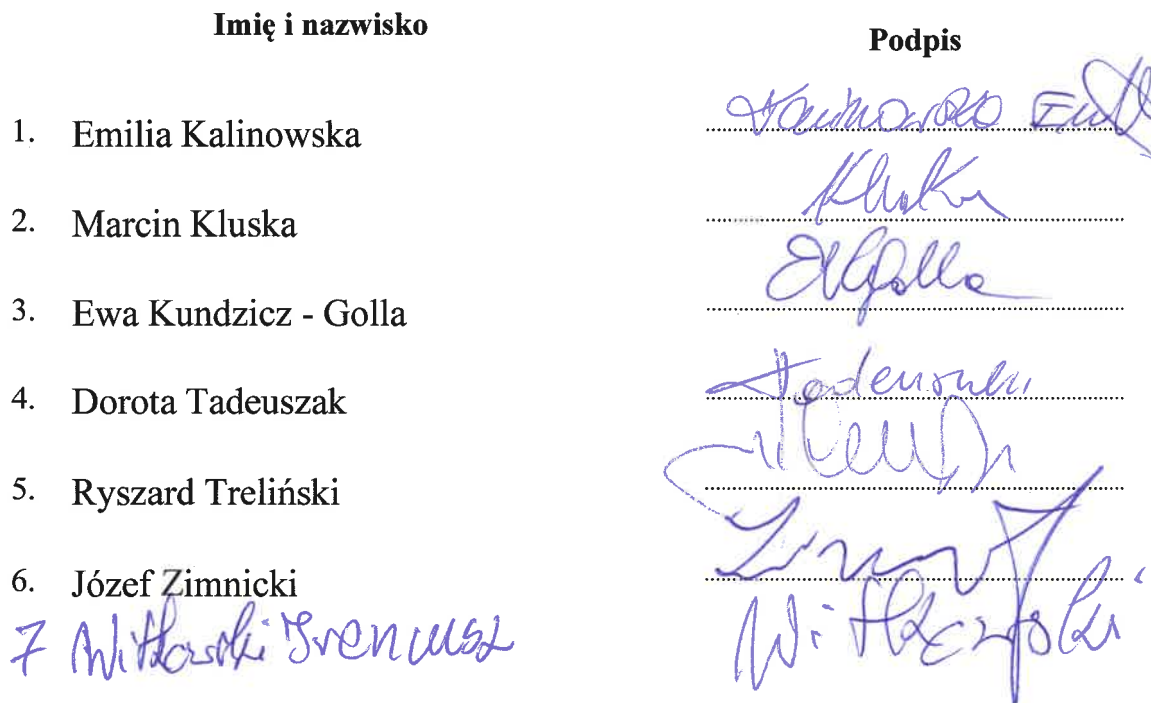 Imię i nazwisko Podpis
1. Emilia Kalinowska Kalinowska
2. Marcin Kluska Kluska
3. Ewa Kundzicz - Golla EKGolla
4. Dorota Tadeuszak Tadeuszak
5. Ryszard Treliński
6. Józef Zimnicki
7 Witkowski Ireneusz Witkowski